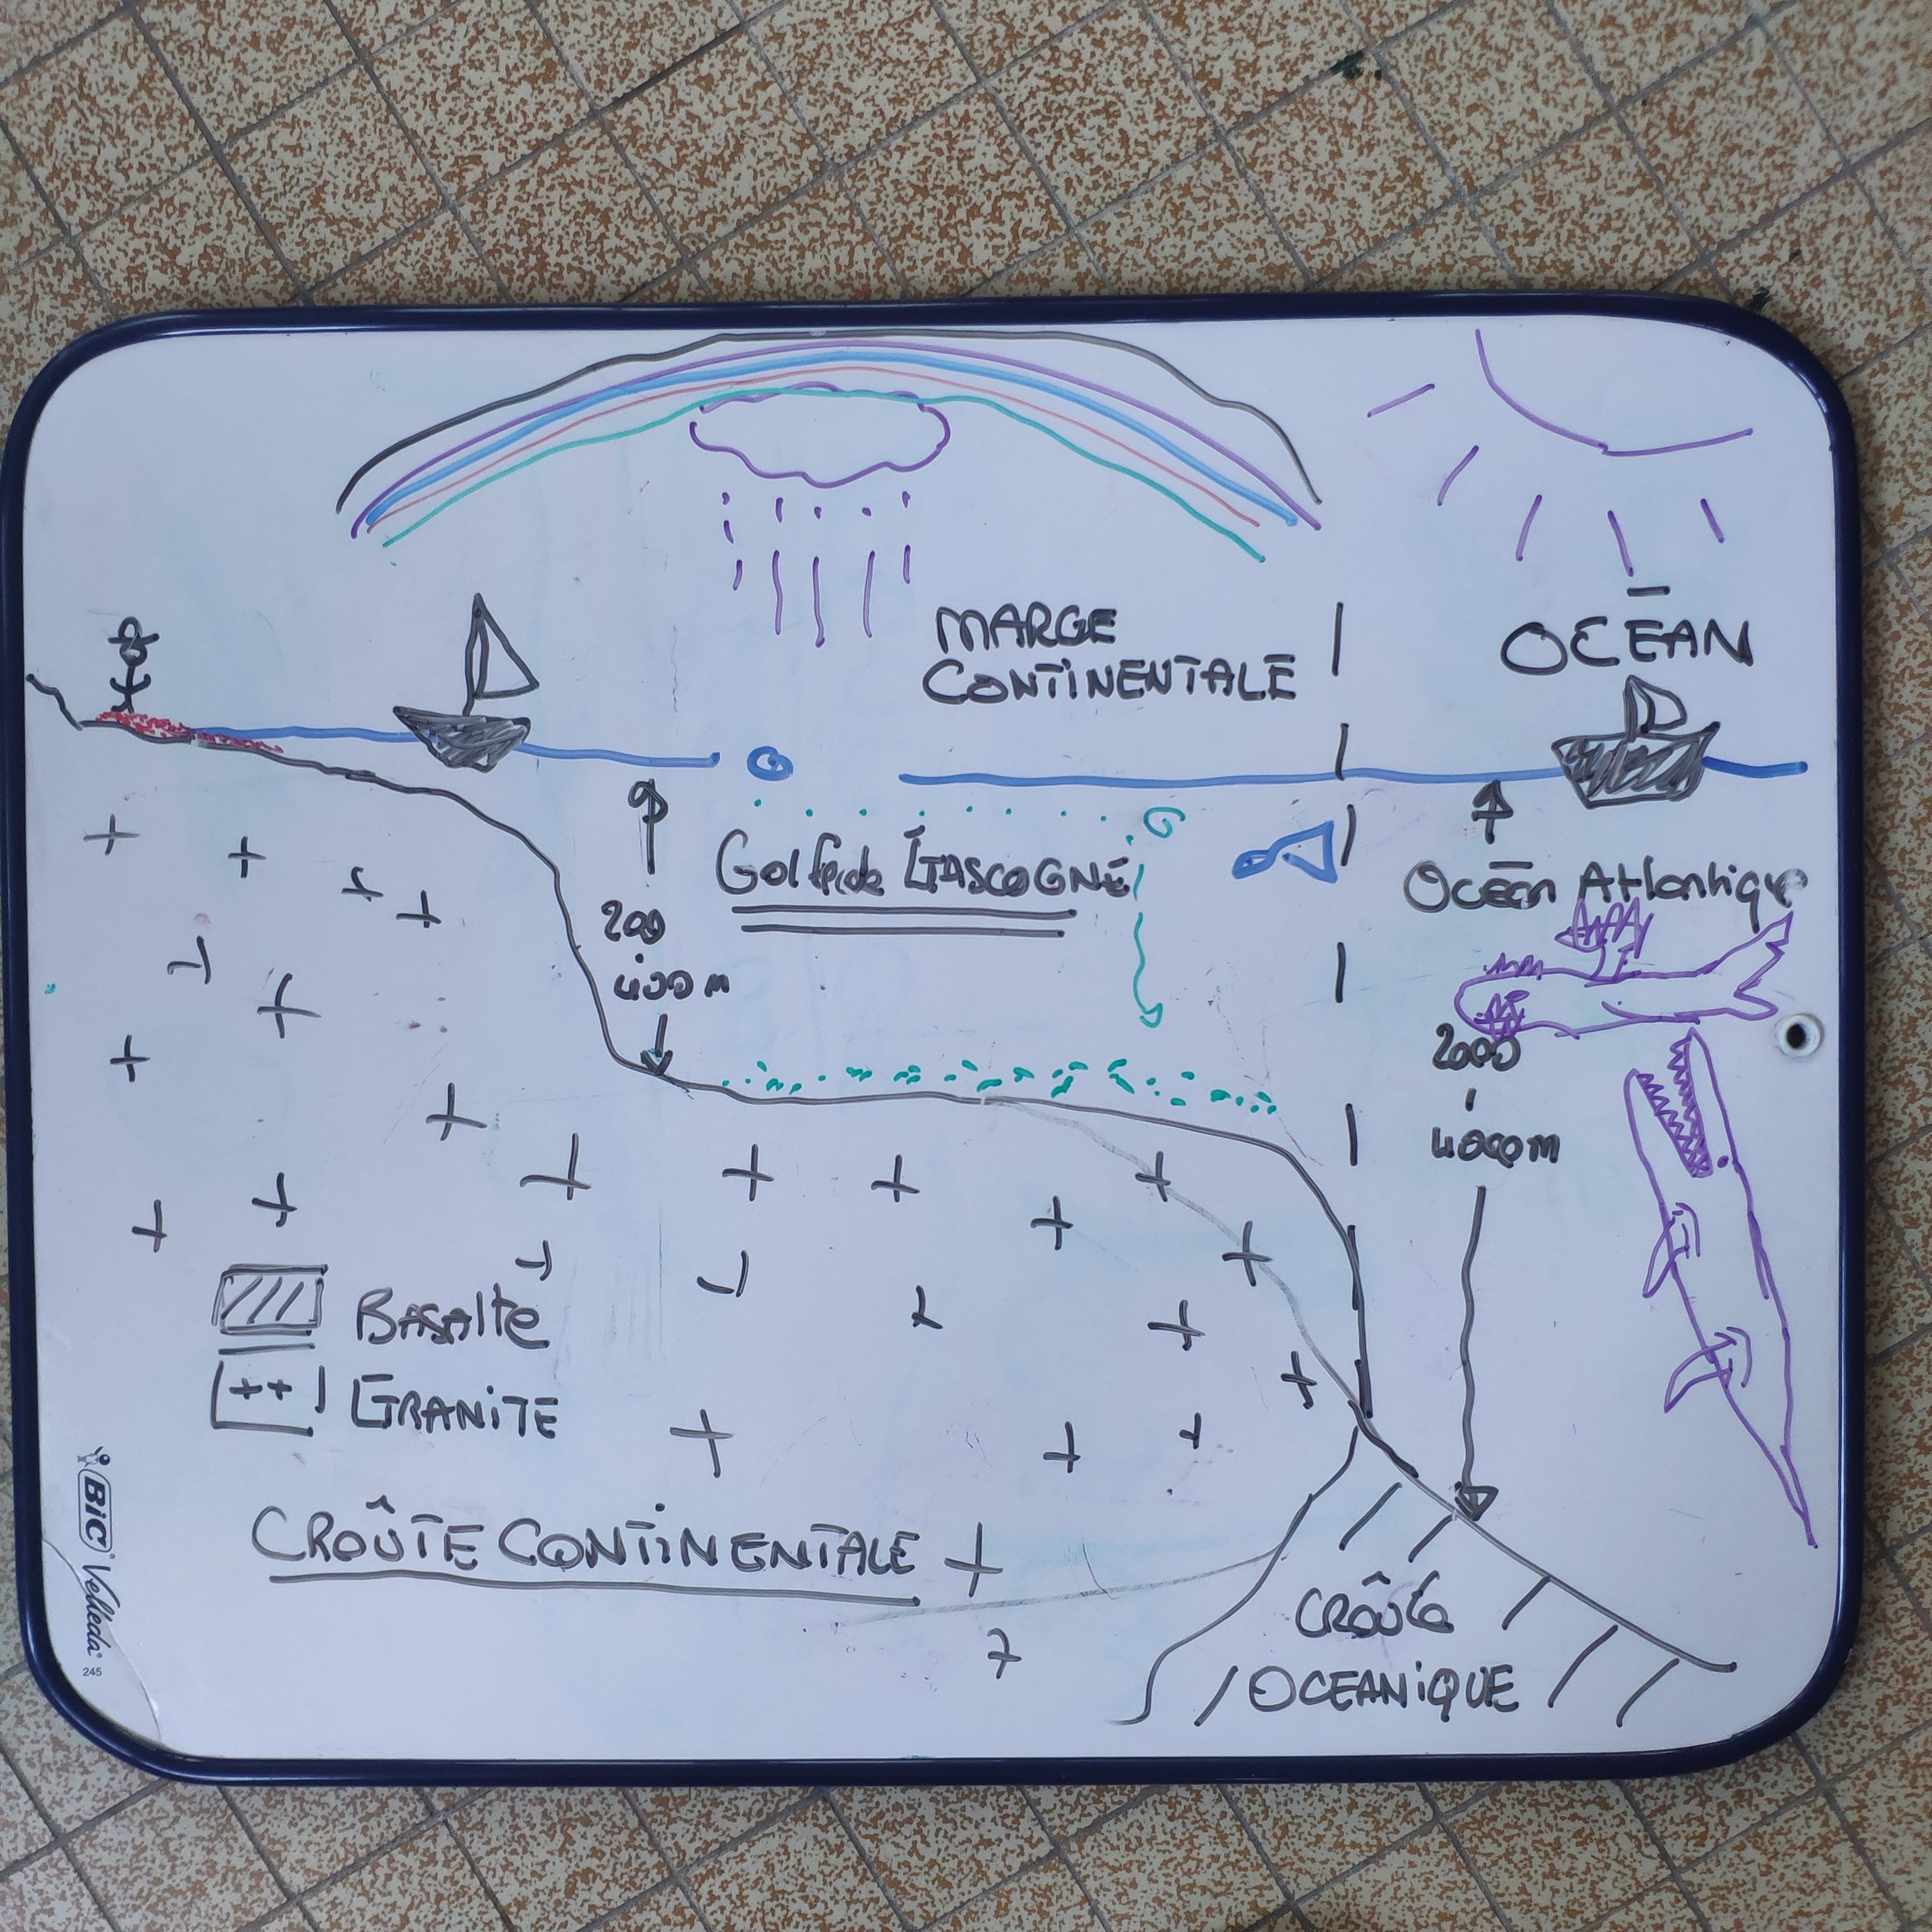 MARGE
CONTINENTALE
OCÉAN
Golfe de GASCOGNE
Océan Atlantique
200
400m
2000
4000m
Basalte
++
GRANITE
CROÛTE CONTINENTALE
CROÛTE
OCEANIQUE
BIC Velleda
245